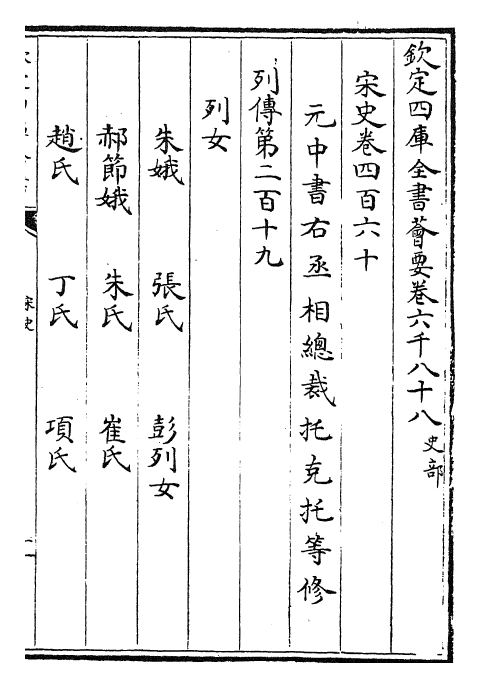 欽定四庫全書薈要卷六千八十八 史部
宋史卷四百六十
元中書右丞相總裁托克托等修
列傳第二百十九
列女
朱娥 張氏 彭列女
郝節娥 朱氏 崔氏
趙氏 丁氏 項氏
宋史